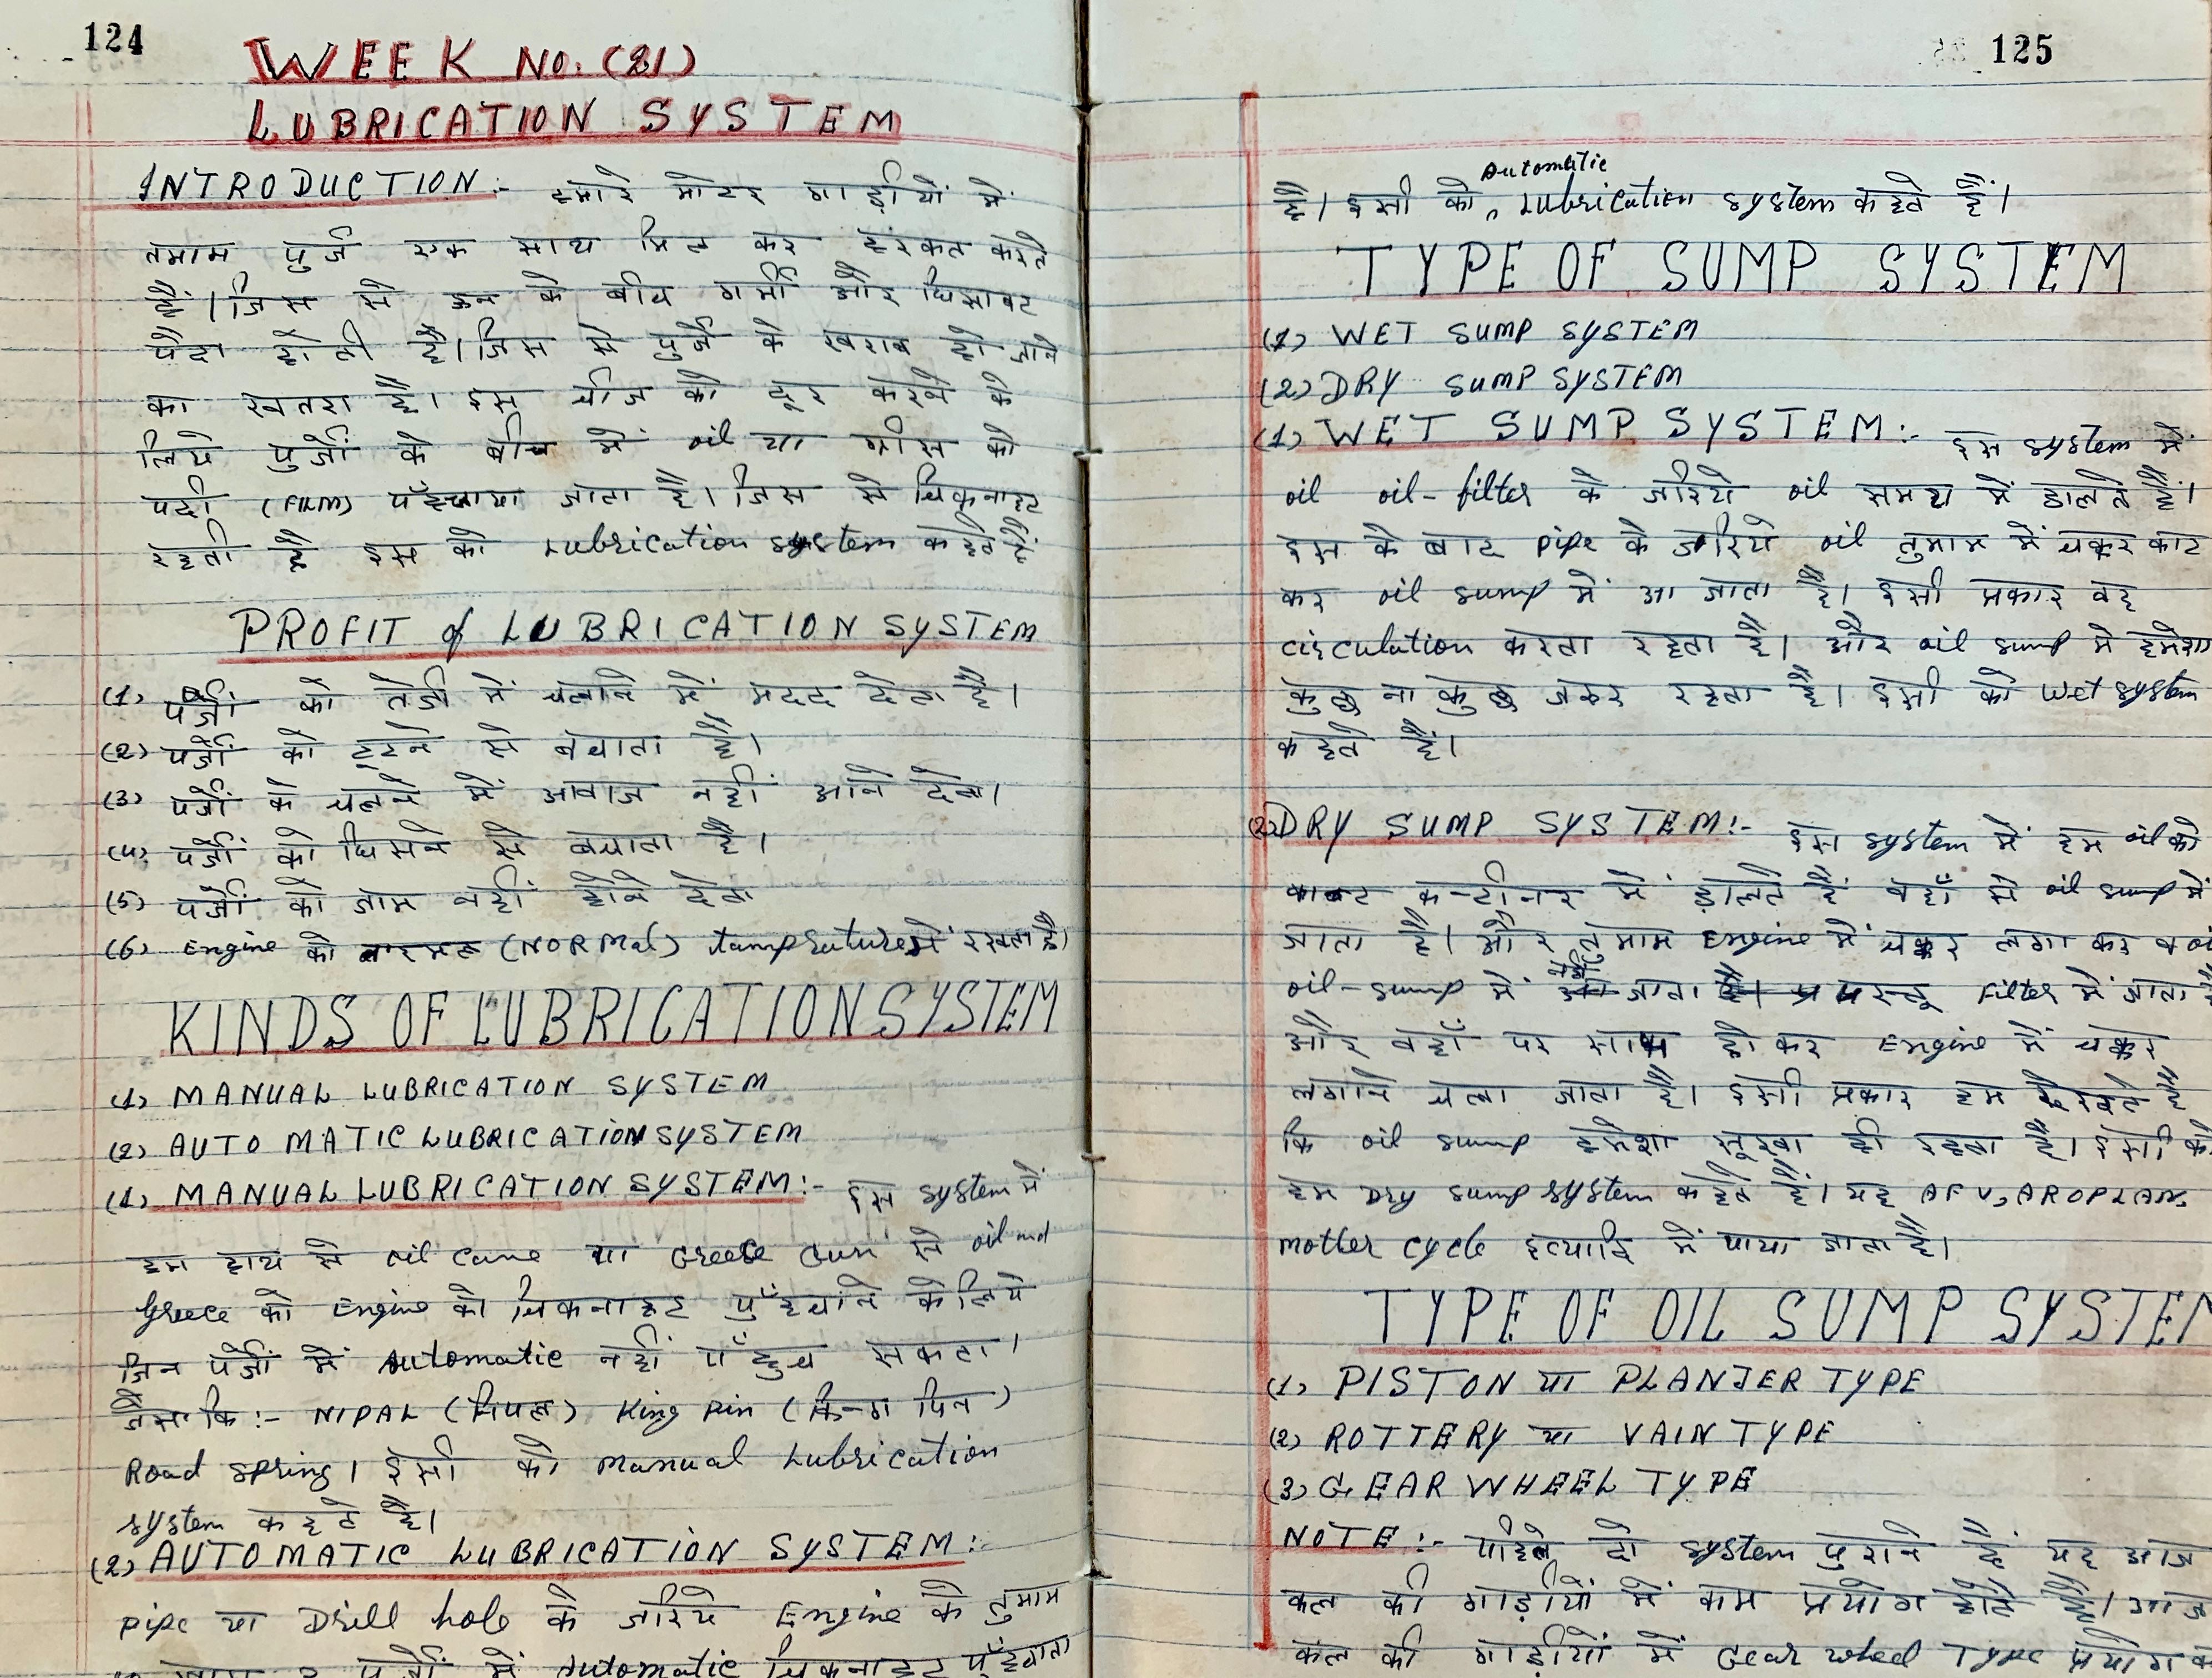 124
WEEK NO. (21)
LUBRICATION SYSTEM
INTRODUCTION:- हमारे मोटर गाड़ीयों में
तमाम पुर्जे एक साथ मिल कर हरकत करते
हैं। जिस से उन के बीच गर्मी और घिसावट
पैदा होती है। जिस से पुर्जे के खराब हो जाने
का खतरा है। इस चीज को दूर करने के
लिये पुर्जों के बीच में oil या ग्रीस की
पर्दा (FILM) पहुँचाया जाता है। जिस से चिकनाहट
रहती है इस को Lubrication system कहते हैं
PROFIT of LUBRICATION SYSTEM
(1) पर्जों को तेजी में चलाने में मदद देता है।
(2) पर्जों को टूटने से बचाता है।
(3) पर्जों के चलने में आवाज नहीं आने देता।
(4) पर्जों को घिसने से बचाता है।
(5) पर्जों को जाम नहीं होने देता
(6) Engine को नारमल (NORMal) में रखता है।
KINDS OF LUBRICATION SYSTEM
(1) MANUAL LUBRICATION SYSTEM
(2) AUTOMATIC LUBRICATION SYSTEM
(1) MANUAL LUBRICATION SYSTEM:- इस system में
हम हाथ से oil cane या Grease Gun से oil and
Greece को Engine को चिकनाहट पुँहचाने के लिये
जिन पर्जों में Automatic नहीं पँहुच सकता।
जैसा कि:- NIPAL (निपल) King Pin (किन्ग पिन)
Road spring। इसी को manual Lubrication
system कहते है।
(2) AUTOMATIC LUBRICATION SYSTEM:-
pipe या Drill hole के जरिये Engine के तुमाम
पर्जों में Automatic चिकनाहट पुँहचाता
125
है। इसी को Automatic Lubrication system कहते हैं।
TYPE OF SUMP SYSTEM
(1) WET SUMP SYSTEM
(2) DRY SUMP SYSTEM
(1) WET SUMP SYSTEM:- इस system में
oil oil-filter के जरिये oil में डालते हैं।
इस के बाद pipe के जरिये oil तुमाम में चक्कर काट
कर oil sump में आ जाता है। इसी प्रकार वह
circulation करता रहता है। और oil sump मे हमेशा
कुछ ना कुछ जरूर रहता है। इसी को Wet system
कहते हैं।
(2) DRY SUMP SYSTEM:- इस system में हम oil को
कन्टीनर में ड़ालते हैं वहाँ से oil sump में
जाता है। और तुमाम Engine में चक्कर लगा कर
oil-sump में नहीं जाता filter में जाता है
और वहाँ पर साफ हो कर Engine में चक्कर
लगाने चला जाता है। इसी प्रकार हम देखते है
कि oil sump हमेशा सूखा ही रहता है। इसी को
हम Dry sump system कहते हैं। यह AFV, AROPLAN,
motter cycle इत्यादि में पाया जाता है।
TYPE OF OIL SUMP SYSTEM
(1) PISTON या PLANJER TYPE
(2) ROTTERY या VAIN TYPE
(3) GEAR WHEEL TYPE
NOTE:- पहिले दो system पुराने हैं यह आज
कल की गाड़ीयों में कम प्रयोग होते हैं। आज
कल की गाड़ीयों में Gear wheel Type प्रयोग